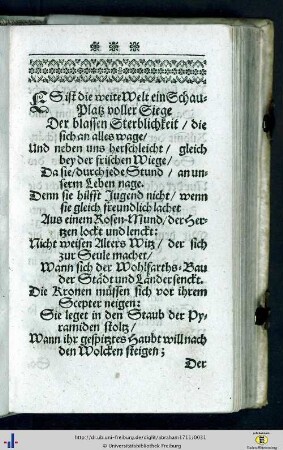 ES ist die weite Welt ein Schau-
Platz voller Siege
Der blassen Sterblichkeit / die
sich an alles wage /
Und neben uns herschleicht / gleich
bey der frischen Wiege /
Da sie / durch jede Stund / an un-
serm Leben nage.
Denn sie hilfft Jugend nicht / wenn
sie gleich freundlich lachet
Aus einem Rosen-Mund / der Her-
tzen lockt und lenckt:
Nicht weisen Alters Witz / der sich
zur Seule machet /
Wann sich der Wohlfarths-Bau
der Städt und Länder senckt.
Die Kronen müssen sich vor ihrem
Scepter neigen:
Sie leget in den Staub der Py-
ramiden stoltz /
Wann ihr gespitztes Haubt will nach
den Wolcken steigen;
Der
http://dl.ub.uni-freiburg.de/diglit/abraham1711/0031
© Universitätsbibliothek Freiburg